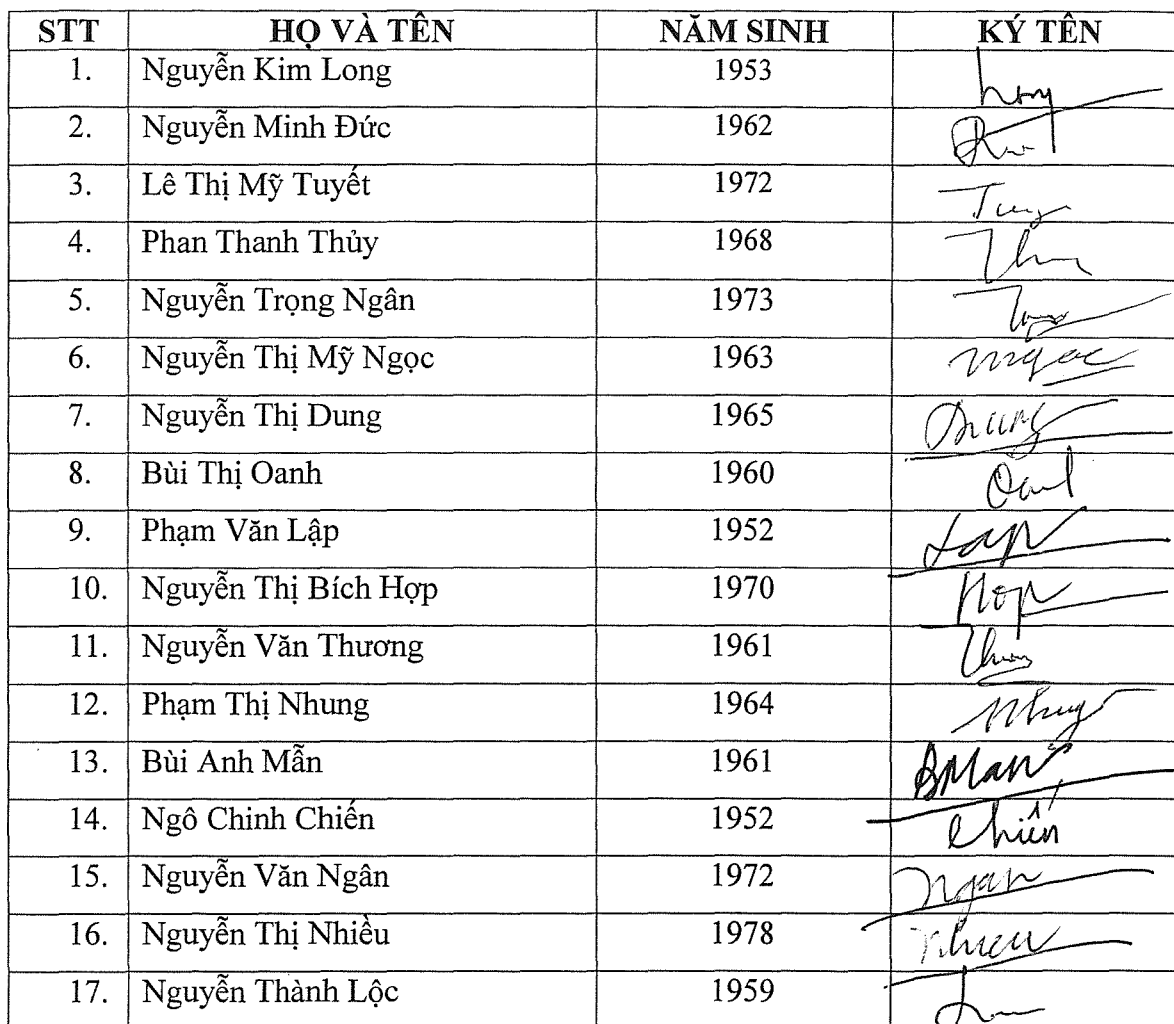 STT HỌ VÀ TÊN NĂM SINH KÝ TÊN
1. Nguyễn Kim Long 1953 Long
2. Nguyễn Minh Đức 1962
3. Lê Thị Mỹ Tuyết 1972
4. Phan Thanh Thủy 1968
5. Nguyễn Trọng Ngân 1973
6. Nguyễn Thị Mỹ Ngọc 1963 mngoc
7. Nguyễn Thị Dung 1965 Dung
8. Bùi Thị Oanh 1960
9. Phạm Văn Lập 1952 Lap
10. Nguyễn Thị Bích Hợp 1970 Hop
11. Nguyễn Văn Thương 1961
12. Phạm Thị Nhung 1964
13. Bùi Anh Mẫn 1961 BMan
14. Ngô Chinh Chiến 1952 Chiến
15. Nguyễn Văn Ngân 1972 Ngan
16. Nguyễn Thị Nhiều 1978 Nhieu
17. Nguyễn Thành Lộc 1959